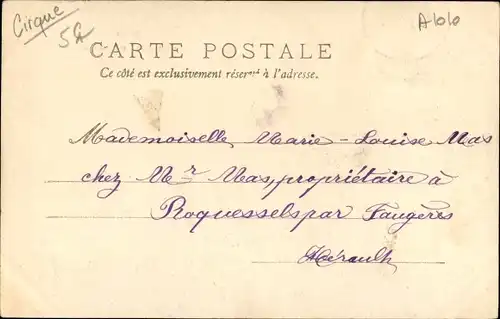 Cirque
A610
CARTE POSTALE
Ce côté est exclusivement réservé à l'adresse.
Mademoiselle Marie-Louise Mas
chez Mr Mas, propriétaire à
Roquessels par Faugères
Hérault